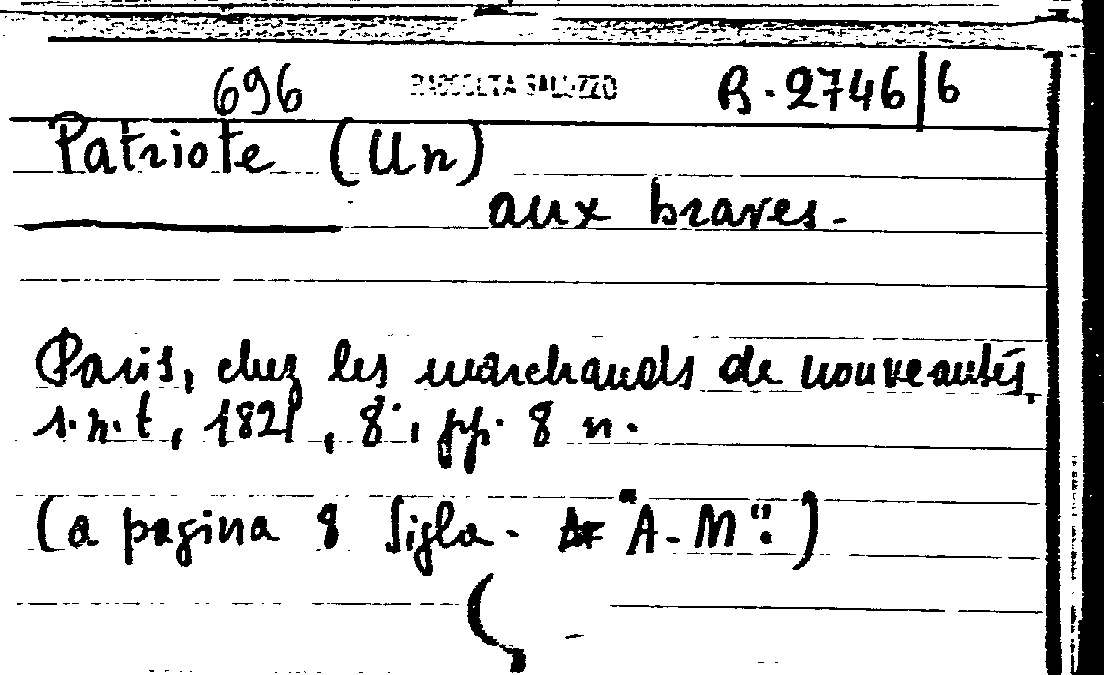 696 RACCOLTA SALUZZO B.2746/6
Patriote (Un)
aux braves.
Paris, chez les marchands de nouveautés,
s.n.t, 1821, 8°, pp. 8 n.
(a pagina 8 sigla. "A-M".)